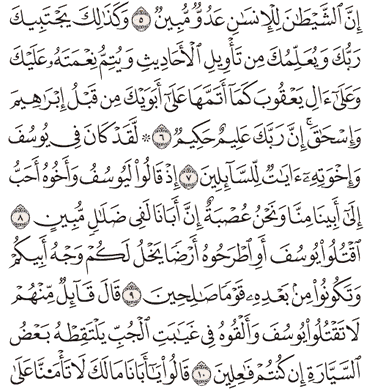 إِنَّ ٱلشَّيۡطَٰنَ لِلۡإِنسَٰنِ عَدُوّٞ مُّبِينٞ ٥ وَكَذَٰلِكَ يَجۡتَبِيكَ
رَبُّكَ وَيُعَلِّمُكَ مِن تَأۡوِيلِ ٱلۡأَحَادِيثِ وَيُتِمُّ نِعۡمَتَهُۥ عَلَيۡكَ
وَعَلَىٰٓ ءَالِ يَعۡقُوبَ كَمَآ أَتَمَّهَا عَلَىٰٓ أَبَوَيۡكَ مِن قَبۡلُ إِبۡرَٰهِيمَ
وَإِسۡحَٰقَۚ إِنَّ رَبَّكَ عَلِيمٌ حَكِيمٞ ٦ ۞ لَّقَدۡ كَانَ فِي يُوسُفَ
وَإِخۡوَتِهِۦٓ ءَايَٰتٞ لِّلسَّآئِلِينَ ٧ إِذۡ قَالُواْ لَيُوسُفُ وَأَخُوهُ أَحَبُّ
إِلَىٰٓ أَبِينَا مِنَّا وَنَحۡنُ عُصۡبَةٌ إِنَّ أَبَانَا لَفِي ضَلَٰلٖ مُّبِينٍ ٨
ٱقۡتُلُواْ يُوسُفَ أَوِ ٱطۡرَحُوهُ أَرۡضٗا يَخۡلُ لَكُمۡ وَجۡهُ أَبِيكُمۡ
وَتَكُونُواْ مِنۢ بَعۡدِهِۦ قَوۡمٗا صَٰلِحِينَ ٩ قَالَ قَآئِلٞ مِّنۡهُمۡ
لَا تَقۡتُلُواْ يُوسُفَ وَأَلۡقُوهُ فِي غَيَٰبَتِ ٱلۡجُبِّ يَلۡتَقِطۡهُ بَعۡضُ
ٱلسَّيَّارَةِ إِن كُنتُمۡ فَٰعِلِينَ ١٠ قَالُواْ يَٰٓأَبَانَا مَالَكَ لَا تَأۡمَ۬نَّا عَلَىٰ